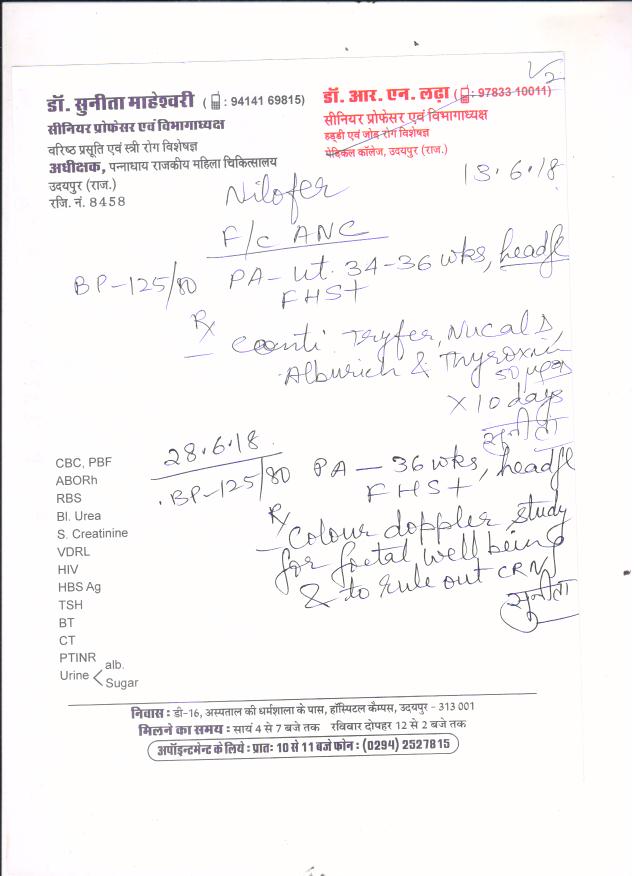 V2
डॉ. सुनीता माहेश्वरी ( : 94141 69815)
सीनियर प्रोफेसर एवं विभागाध्यक्ष
वरिष्ठ प्रसूति एवं स्त्री रोग विशेषज्ञ
अधीक्षक, पन्नाधाय राजकीय महिला चिकित्सालय
उदयपुर (राज.)
रजि. नं. 8458
डॉ. आर. एन. लढ़ा ( : 97833 10011)
सीनियर प्रोफेसर एवं विभागाध्यक्ष
हड्डी एवं जोड़ रोग विशेषज्ञ
मेडिकल कॉलेज, उदयपुर (राज.)
13.6.18
Nilofer
F/c ANC
BP-125/80 PA - ut. 34-36 wks, headfl
FHS+
Rx
conti Tryfer, Nucal D,
& Thyroxin
50 μgm
X 10 days
सुनीता
28.6.18.
BP-125/80 PA - 36 wks, headfl
FHS+
Rx
Colour doppler study
for foetal well being
& to rule out CRN
सुनीता
CBC, PBF
ABORh
RBS
Bl. Urea
S. Creatinine
VDRL
HIV
HBS Ag
TSH
BT
CT
PTINR
Urine < alb.
Sugar
निवास : डी-16, अस्पताल की धर्मशाला के पास, हॉस्पिटल कैम्पस, उदयपुर - 313 001
मिलने का समय : सायं 4 से 7 बजे तक रविवार दोपहर 12 से 2 बजे तक
अपॉइन्टमेन्ट के लिये : प्रातः 10 से 11 बजे फोन : (0294) 2527815